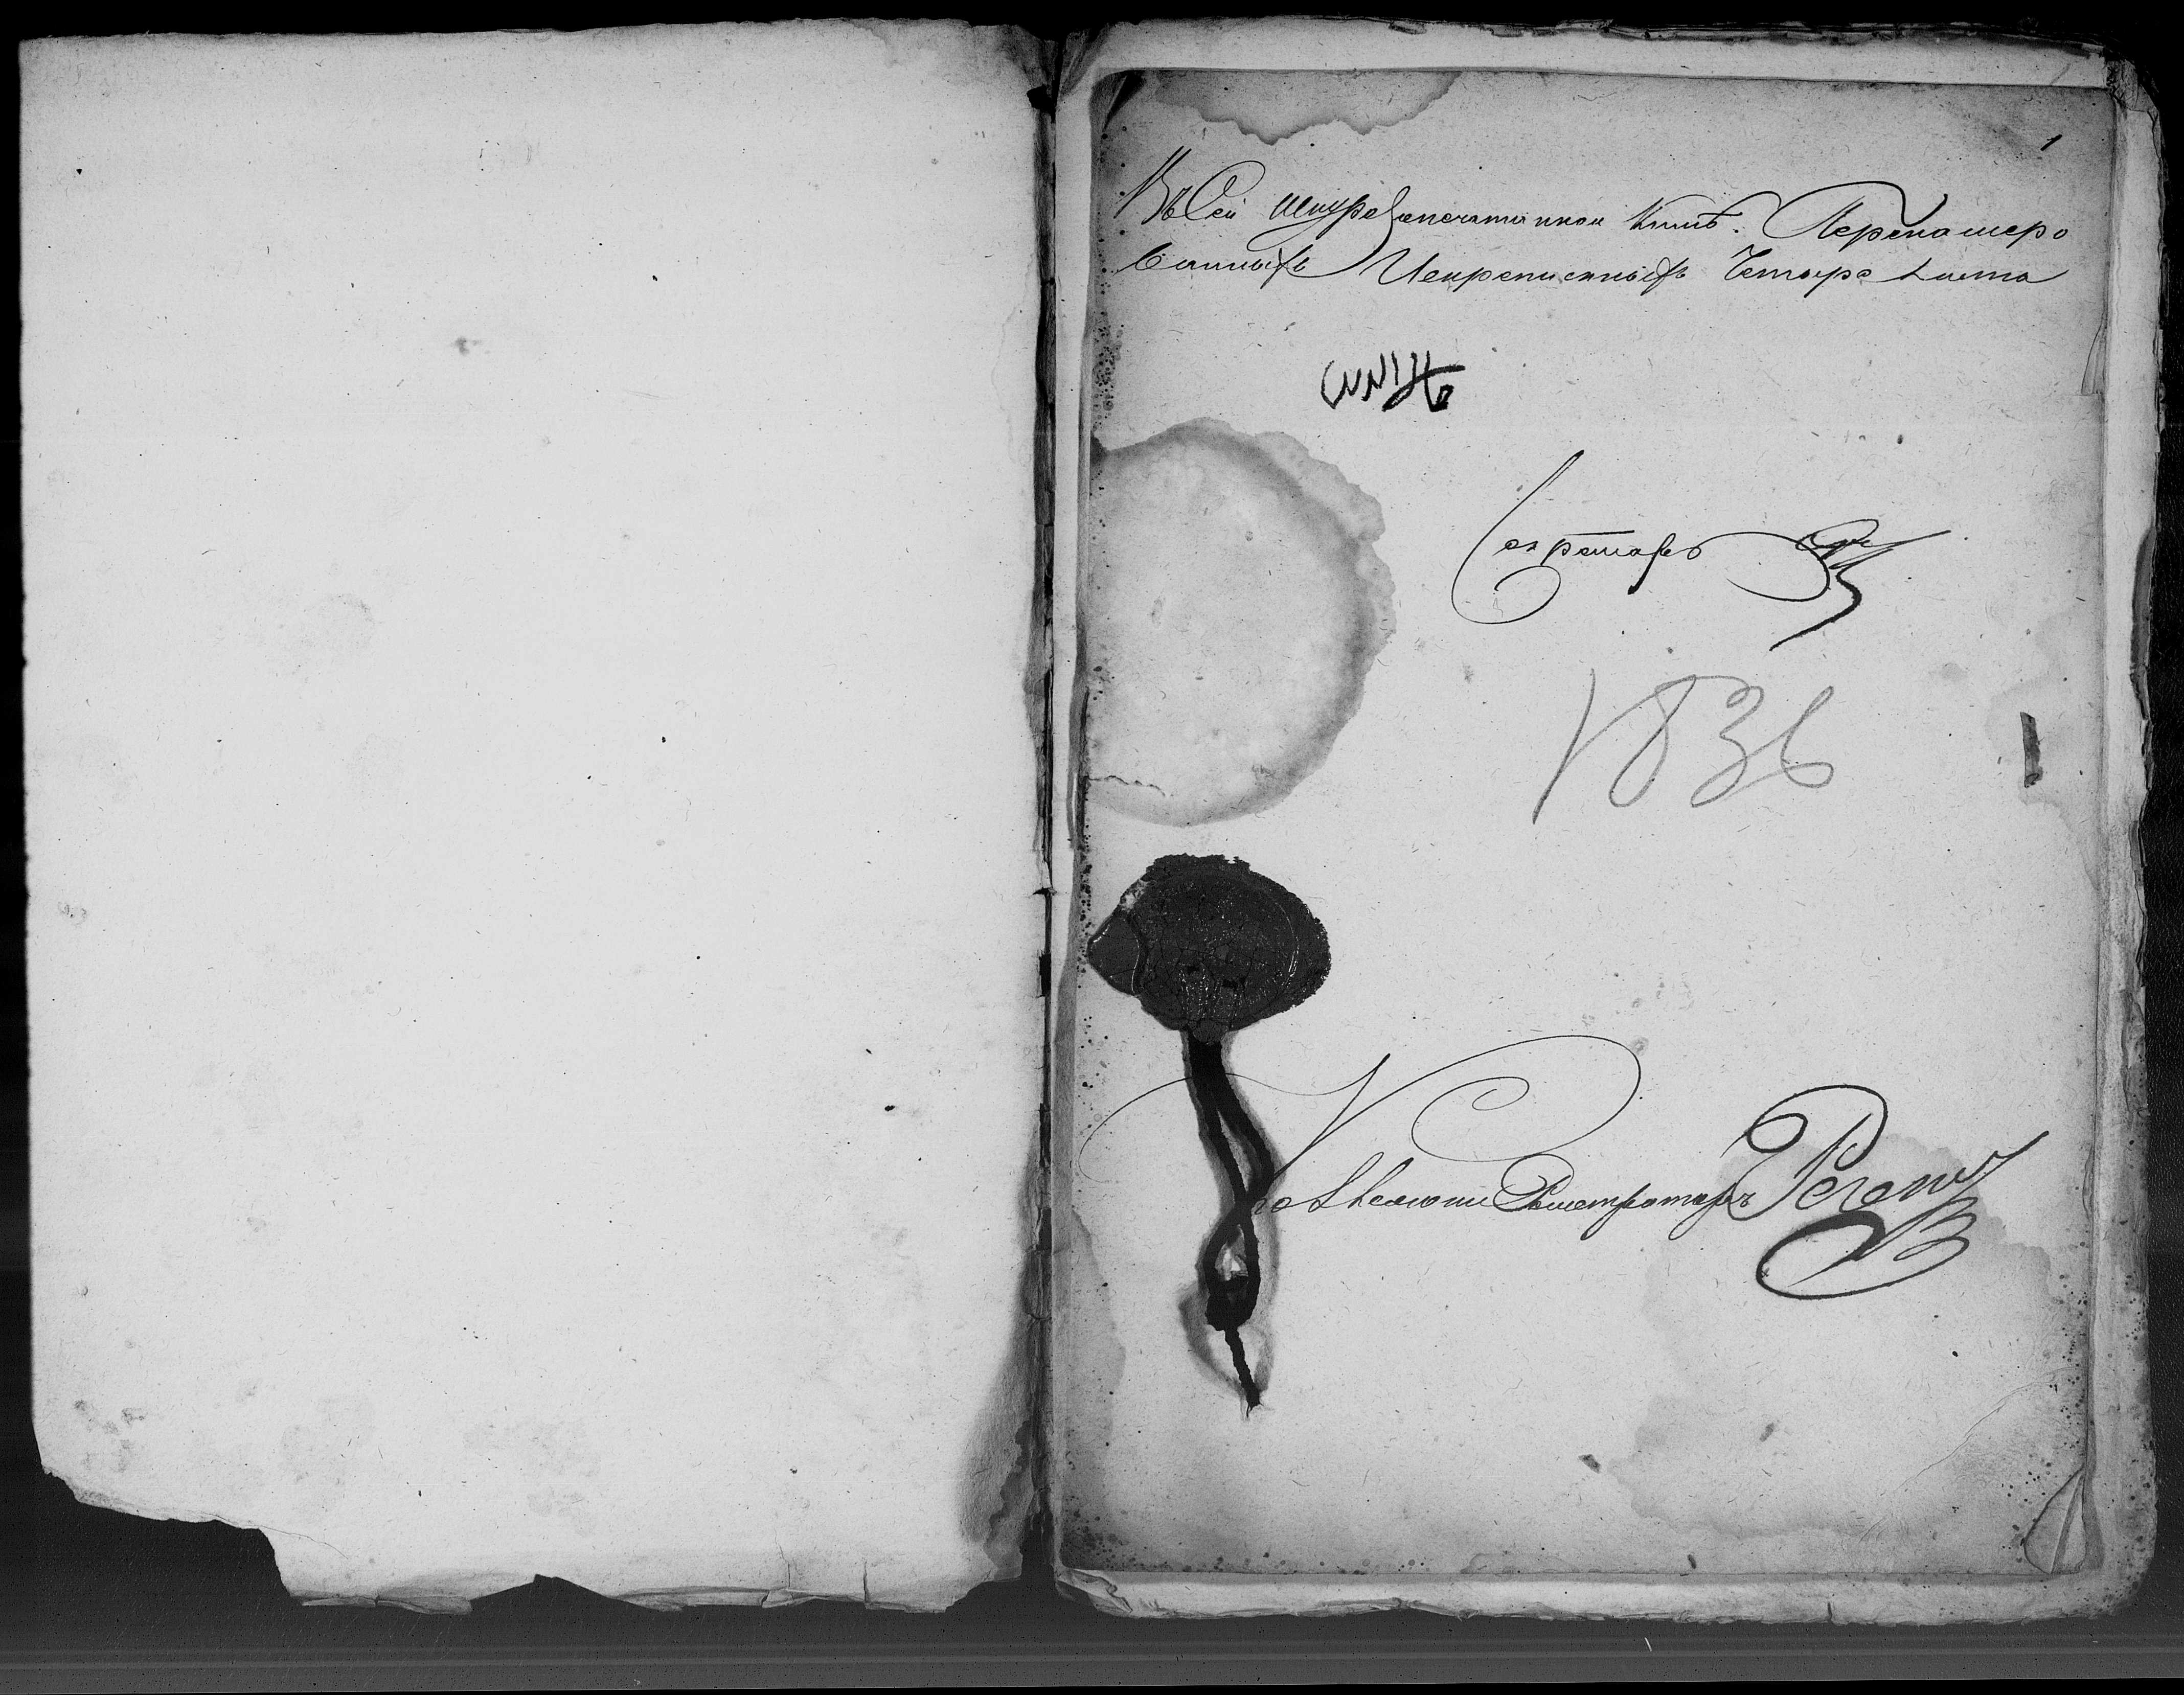 1
Въ Сей шнурозапечатанной Книгѣ. Перенамеро
ванныхъ Искрепленныхъ Четыре Листа
Секретарь
1836
Коллежский Регистраторъ